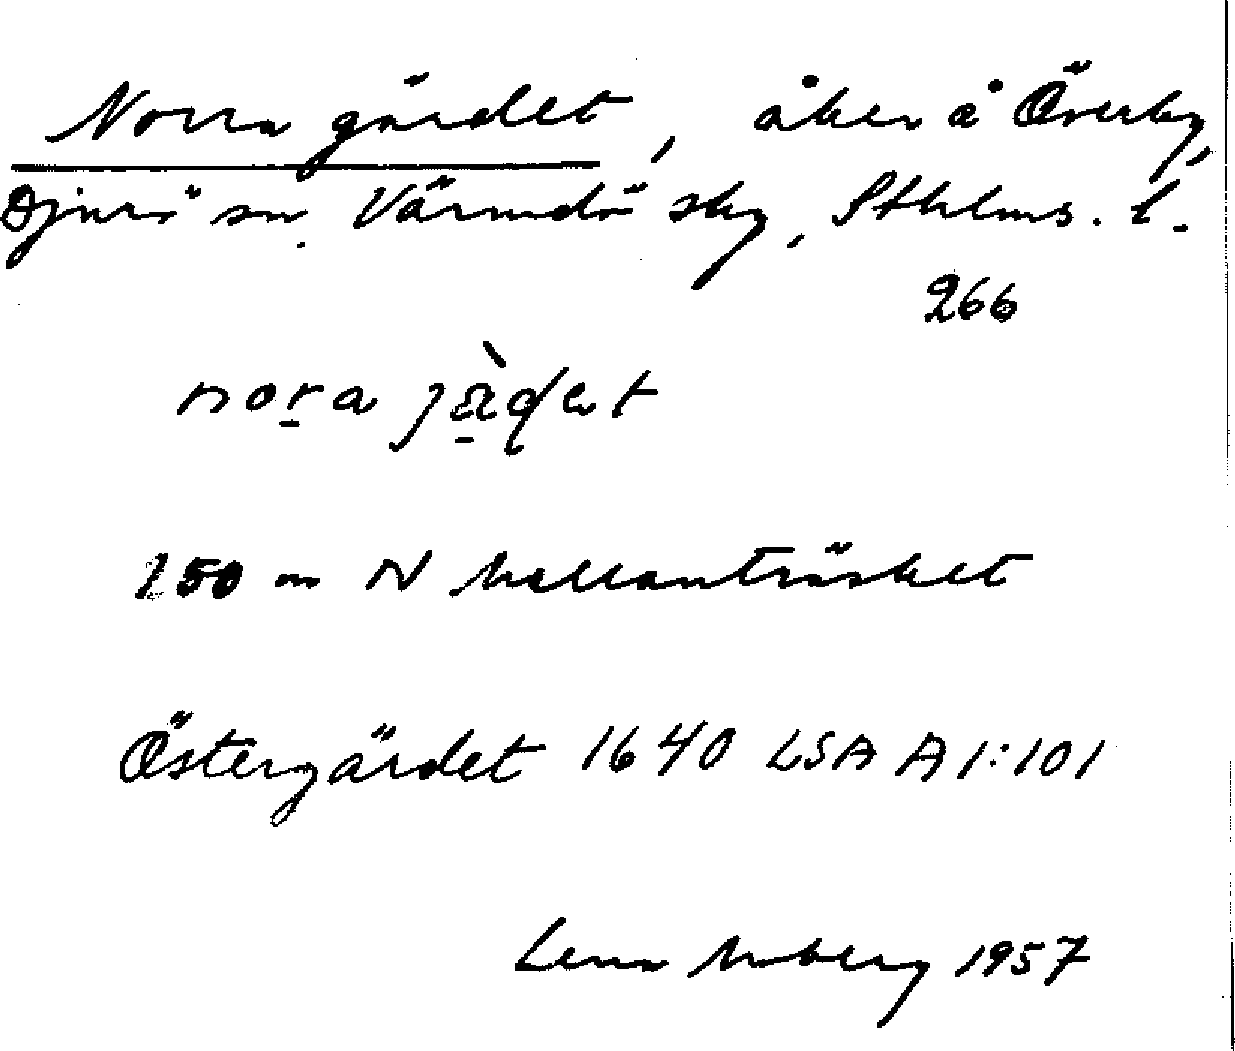 Norra gärdet, åker å Överby,
Djurö sn. Värmdö skg, Sthlms. l.
266
nora jà̱ḍet
250 m N Mellanträsket
Östergärdet 1640 LSA A1:101
Lena Moberg 1957